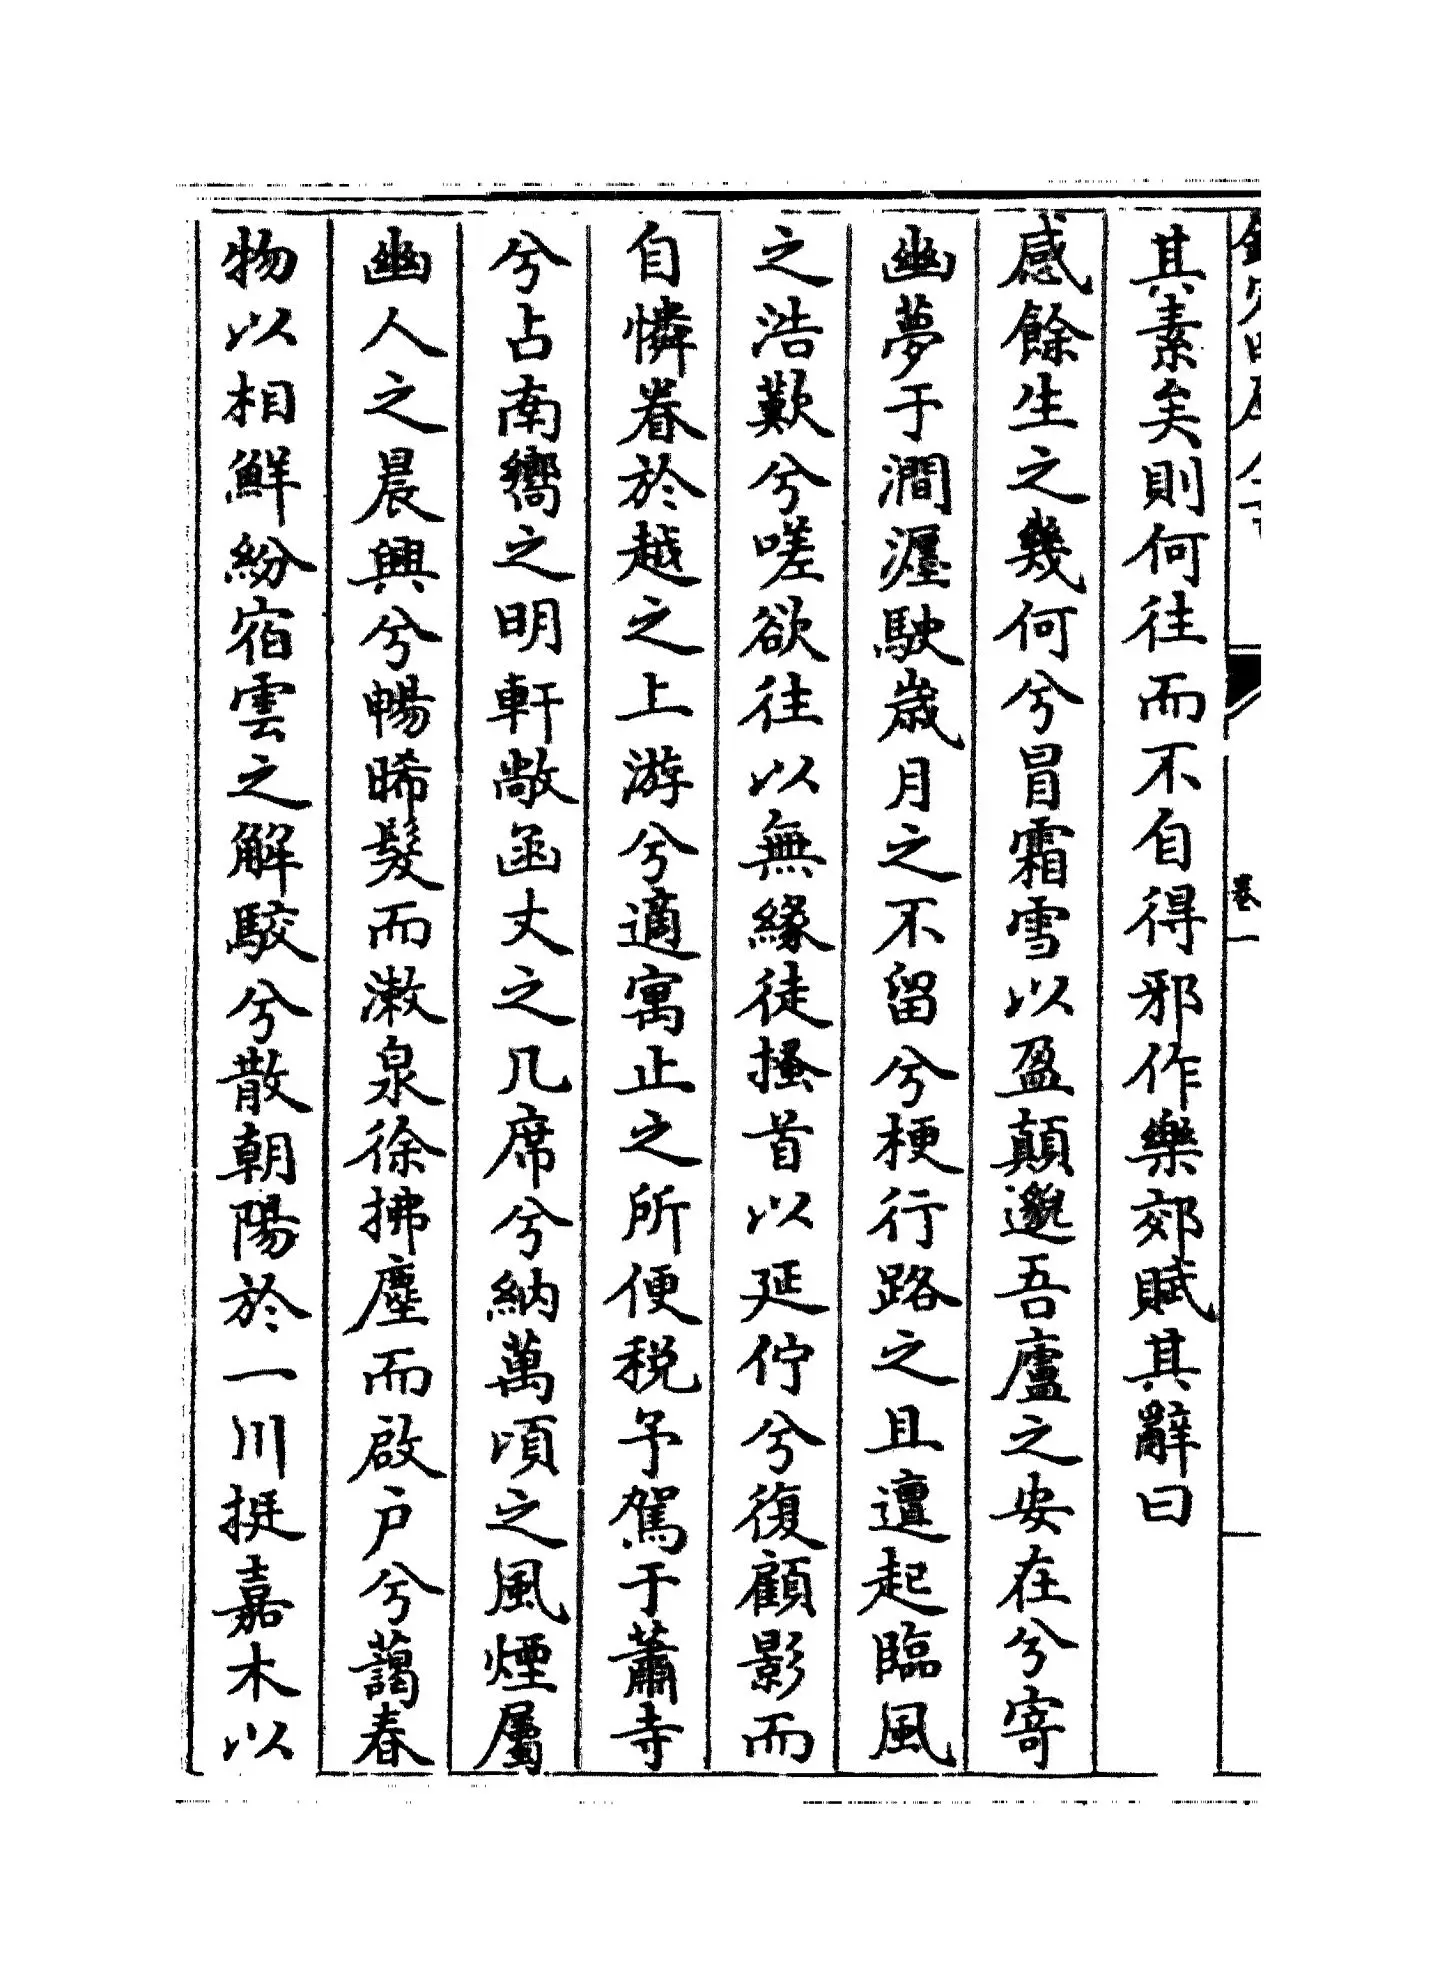 卷一
其素矣則何往而不自得邪作樂郊賦其辭曰
感餘生之幾何兮冒霜雪以盈顛邈吾廬之安在兮寄
幽夢于澗瀍駛歲月之不留兮梗行路之且邅起臨風
之浩歎兮嗟欲往以無緣徒搔首以延佇兮復顧影而
自憐眷於越之上游兮適寓止之所便税予駕于蕭寺
兮占南嚮之明軒敞函丈之几席兮納萬頃之風煙屬
幽人之晨興兮暢晞髮而漱泉徐拂塵而啟户兮藹春
物以相鮮紛宿雲之解駮兮散朝陽於一川挺嘉木以